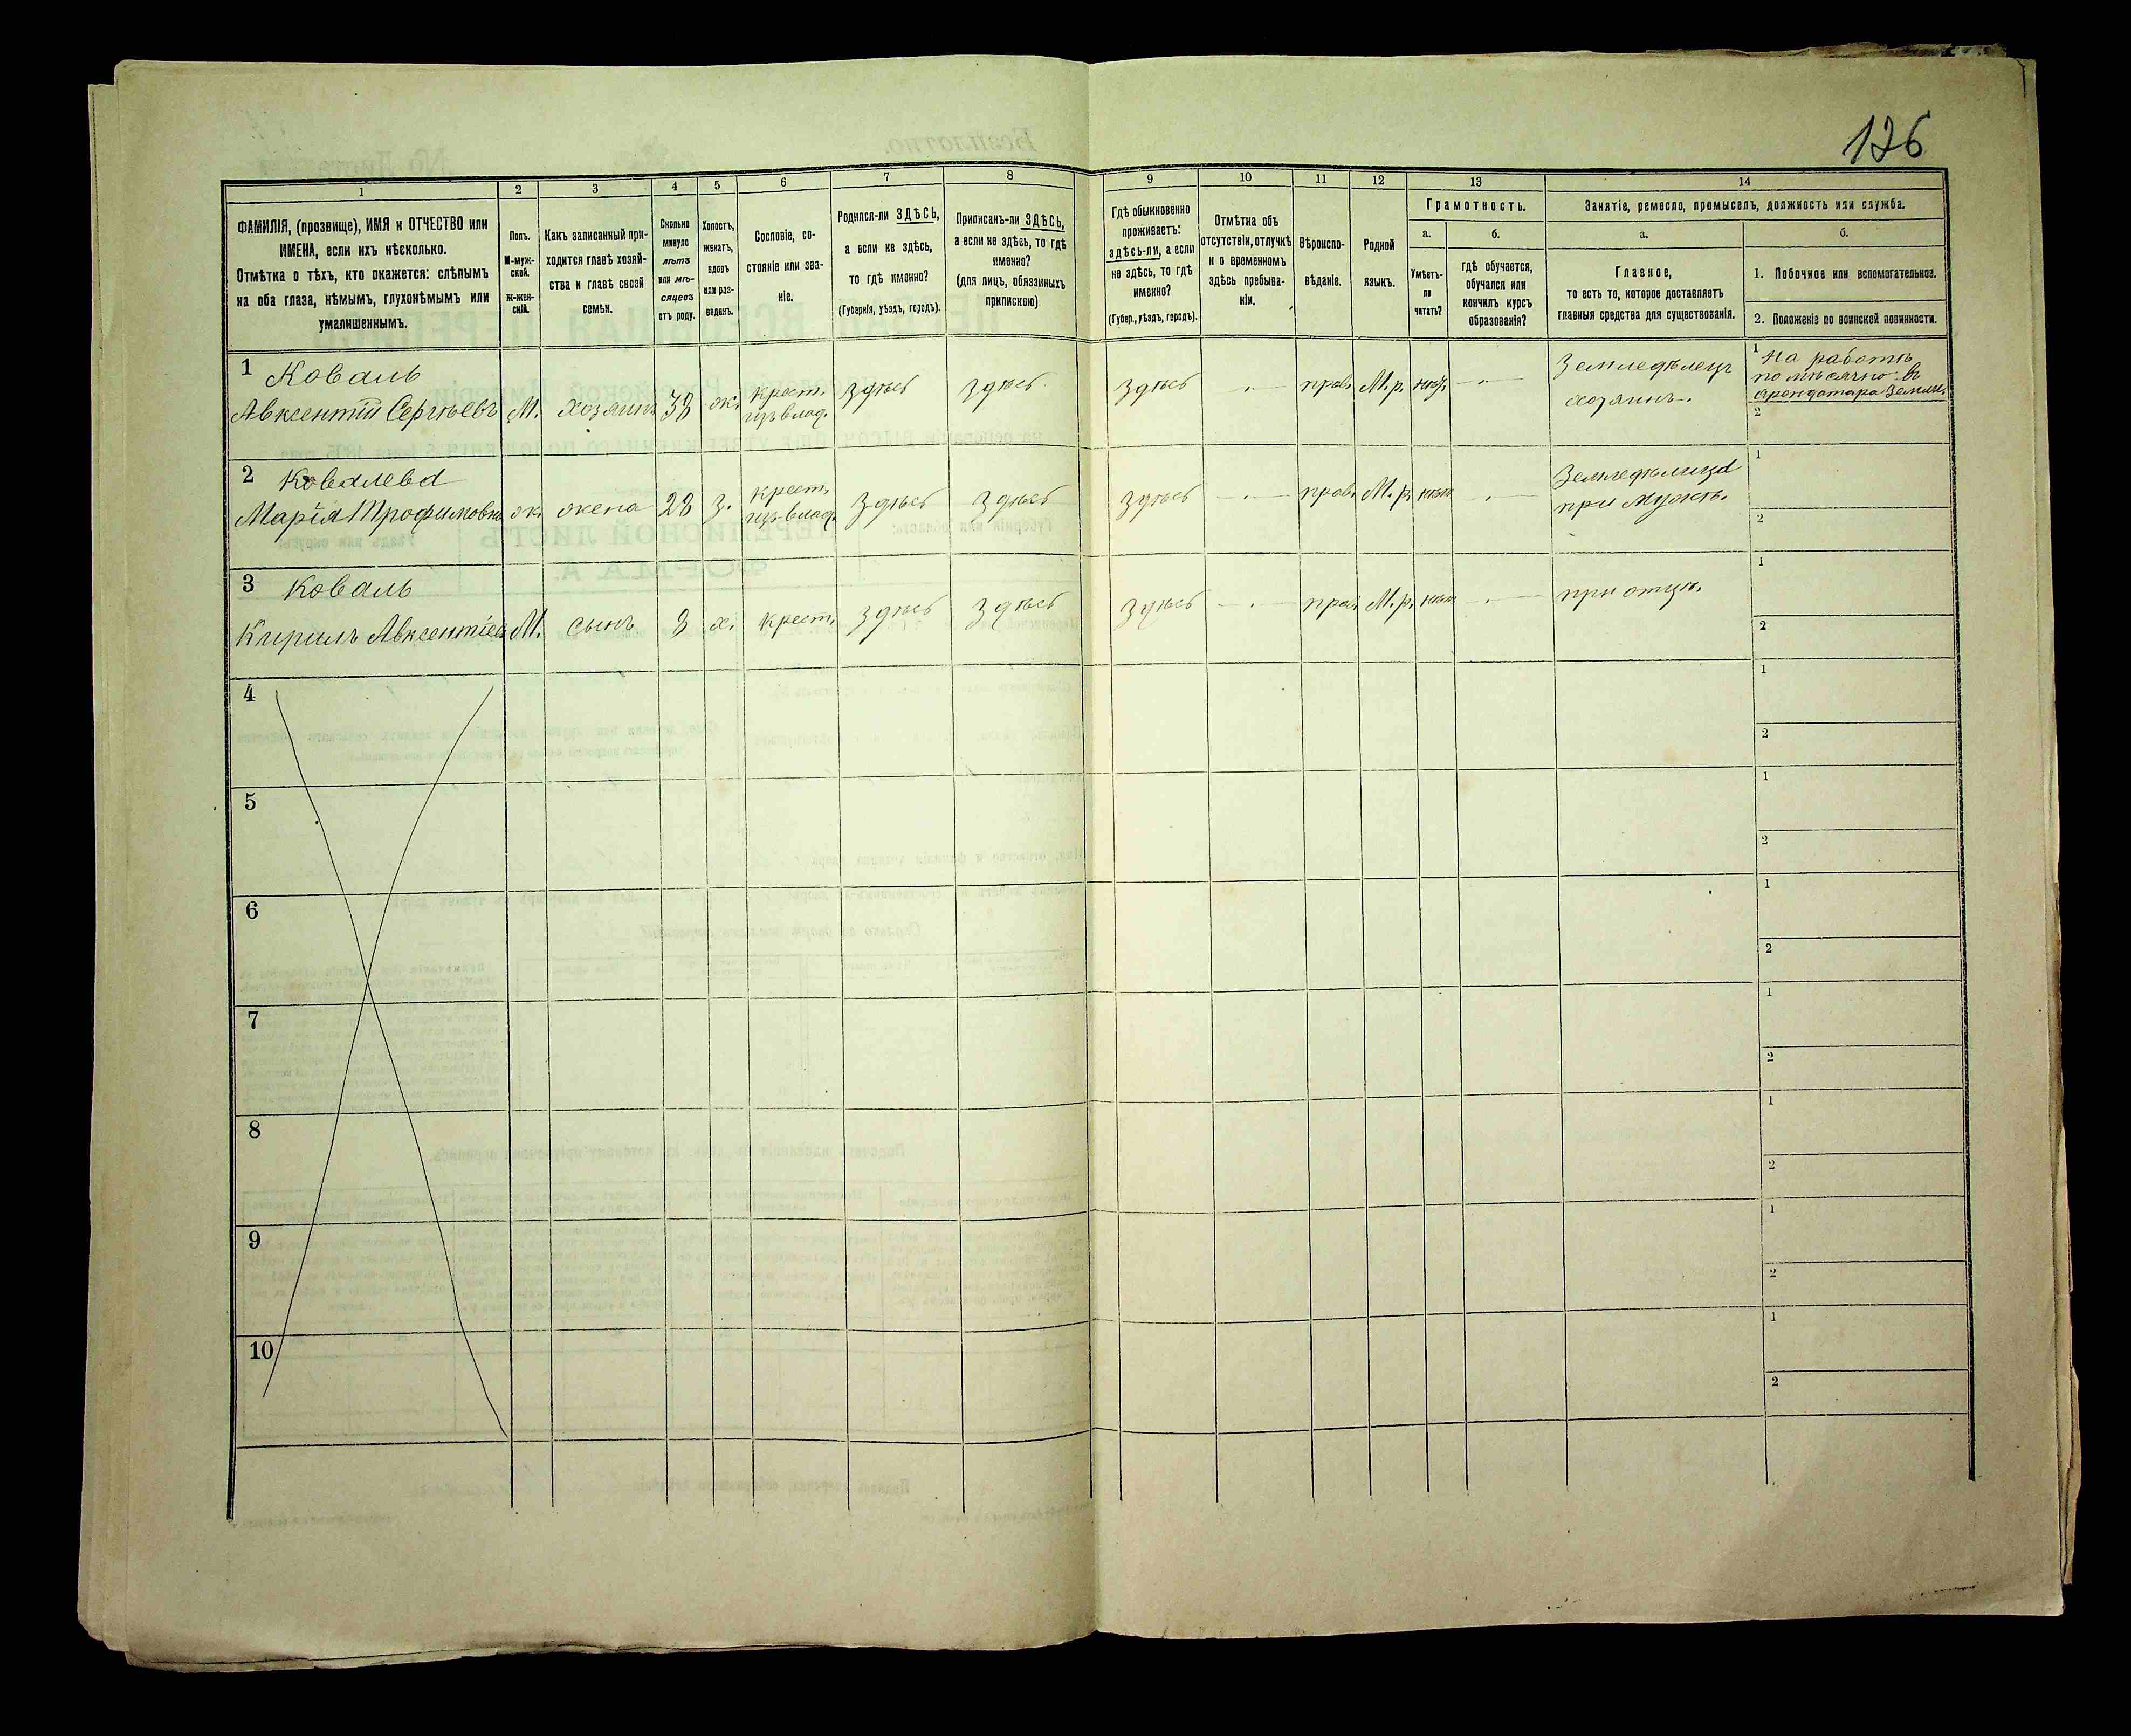 126
1 2 3 4 5 6 7 8 9 10 11 12 13 14
ФАМИЛІЯ, (прозвище), ИМЯ и ОТЧЕСТВО или
ИМЕНА, если ихъ нѣсколько.
Отмѣтка о тѣхъ, кто окажется: слѣпымъ
на оба глаза, нѣмымъ, глухонѣмымъ или
умалишеннымъ.
Полъ.
М-муж-
ской.
Ж-жен-
скій.
Какъ записанный при-
ходится главѣ хозяй-
ства и главѣ своей
семьи.
Сколько
минуло
лѣтъ
или мѣ-
сяцевъ
отъ роду.
Холостъ,
женатъ,
вдовъ
или раз-
веденъ.
Сословіе, со-
стояніе или зва-
ніе.
Родился-ли ЗДѢСЬ,
а если не здѣсь,
то гдѣ именно?
(Губернія, уѣздъ, городъ).
Приписанъ-ли ЗДѢСЬ,
а если не здѣсь, то гдѣ
именно?
(для лицъ, обязанныхъ
припискою)
Гдѣ обыкновенно
проживаетъ:
здѣсь-ли, а если
не здѣсь, то гдѣ
именно?
(Губер., уѣздъ, городъ).
Отмѣтка объ
отсутствіи, отлучкѣ
и о временномъ
здѣсь пребыва-
ніи.
Вѣроиспо-
вѣданіе.
Родной
языкъ.
Грамотность.
а.
Умѣетъ-
ли
читать?
б.
гдѣ обучается,
обучался или
кончилъ курсъ
образованія?
Занятіе, ремесло, промыселъ, должность или служба.
а.
Главное,
то есть то, которое доставляетъ
главныя средства для существованія.
б.
1. Побочное или вспомогательное.
2. Положеніе по воинской повинности.
1 Коваль
Авксентій Сергѣевъ М. хозяинъ 38 ж. крест. изъ влад. здѣсь здѣсь здѣсь прав. М.р. нѣт.
Земледѣлецъ
хозяинъ.
1 На работѣ
помѣсячно въ
арендатара земли.
2
2 Ковалева
Марія Трофимовна ж. жена 28 з. крест. изъ влад. здѣсь здѣсь здѣсь прав. М.р. нѣт.
Земледѣлица
при мужѣ.
1
2
3 Коваль
Кирилъ Авксентіев М. сынъ 8 х. крест. здѣсь здѣсь здѣсь прав. М.р. нѣт. при отцѣ.
1
2
4
1
2
5
1
2
6
1
2
7
1
2
8
1
2
9
1
2
10
1
2